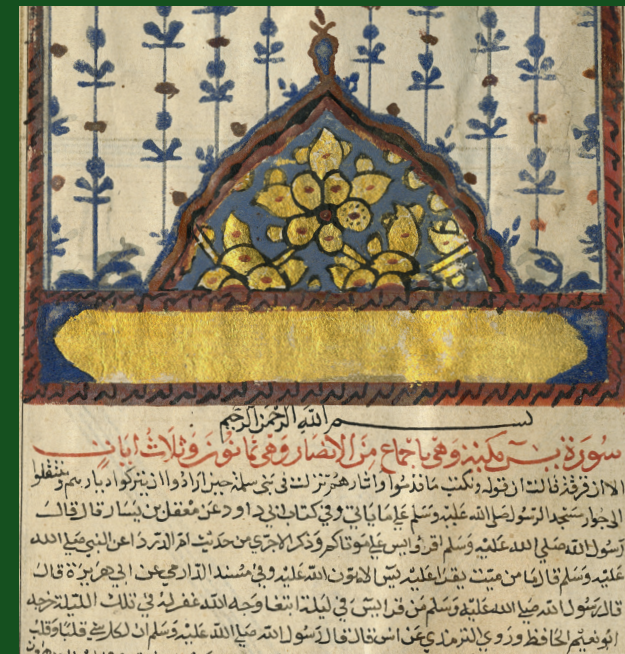 بسم الله الرحمن الرحيم
سورة يس مكية وهي باجماع من الانصار وهي ثمانون وثلاث ايات
الا ان فرقة قالت ان قوله ونكتب ما قدموا واثارهم نزلت في بني سلمة حين ارادوا ان يتركوا ديارهم وينتقلوا
الى جوار مسجد الرسول صلى الله عليه وسلم على ما ياتي وفي كتاب ابي داود عن معقل بن يسار قال قال
رسول الله صلى الله عليه وسلم اقرؤا يس على موتاكم وذكر الاجري من حديث ام الدرداء عن النبي صلى الله
عليه وسلم قال ما من ميت يقرا عليه يس الا هون الله عليه وفي مسند الدارمي عن ابي هريرة قال
قال رسول الله صلى الله عليه وسلم من قرا يس في ليلة ابتغا وجه الله غفر له في تلك الليلة خرجه
ابو نعيم الحافظ وروى الترمذي عن انس قال قال رسول الله صلى الله عليه وسلم ان لكل شي قلبا وقلب